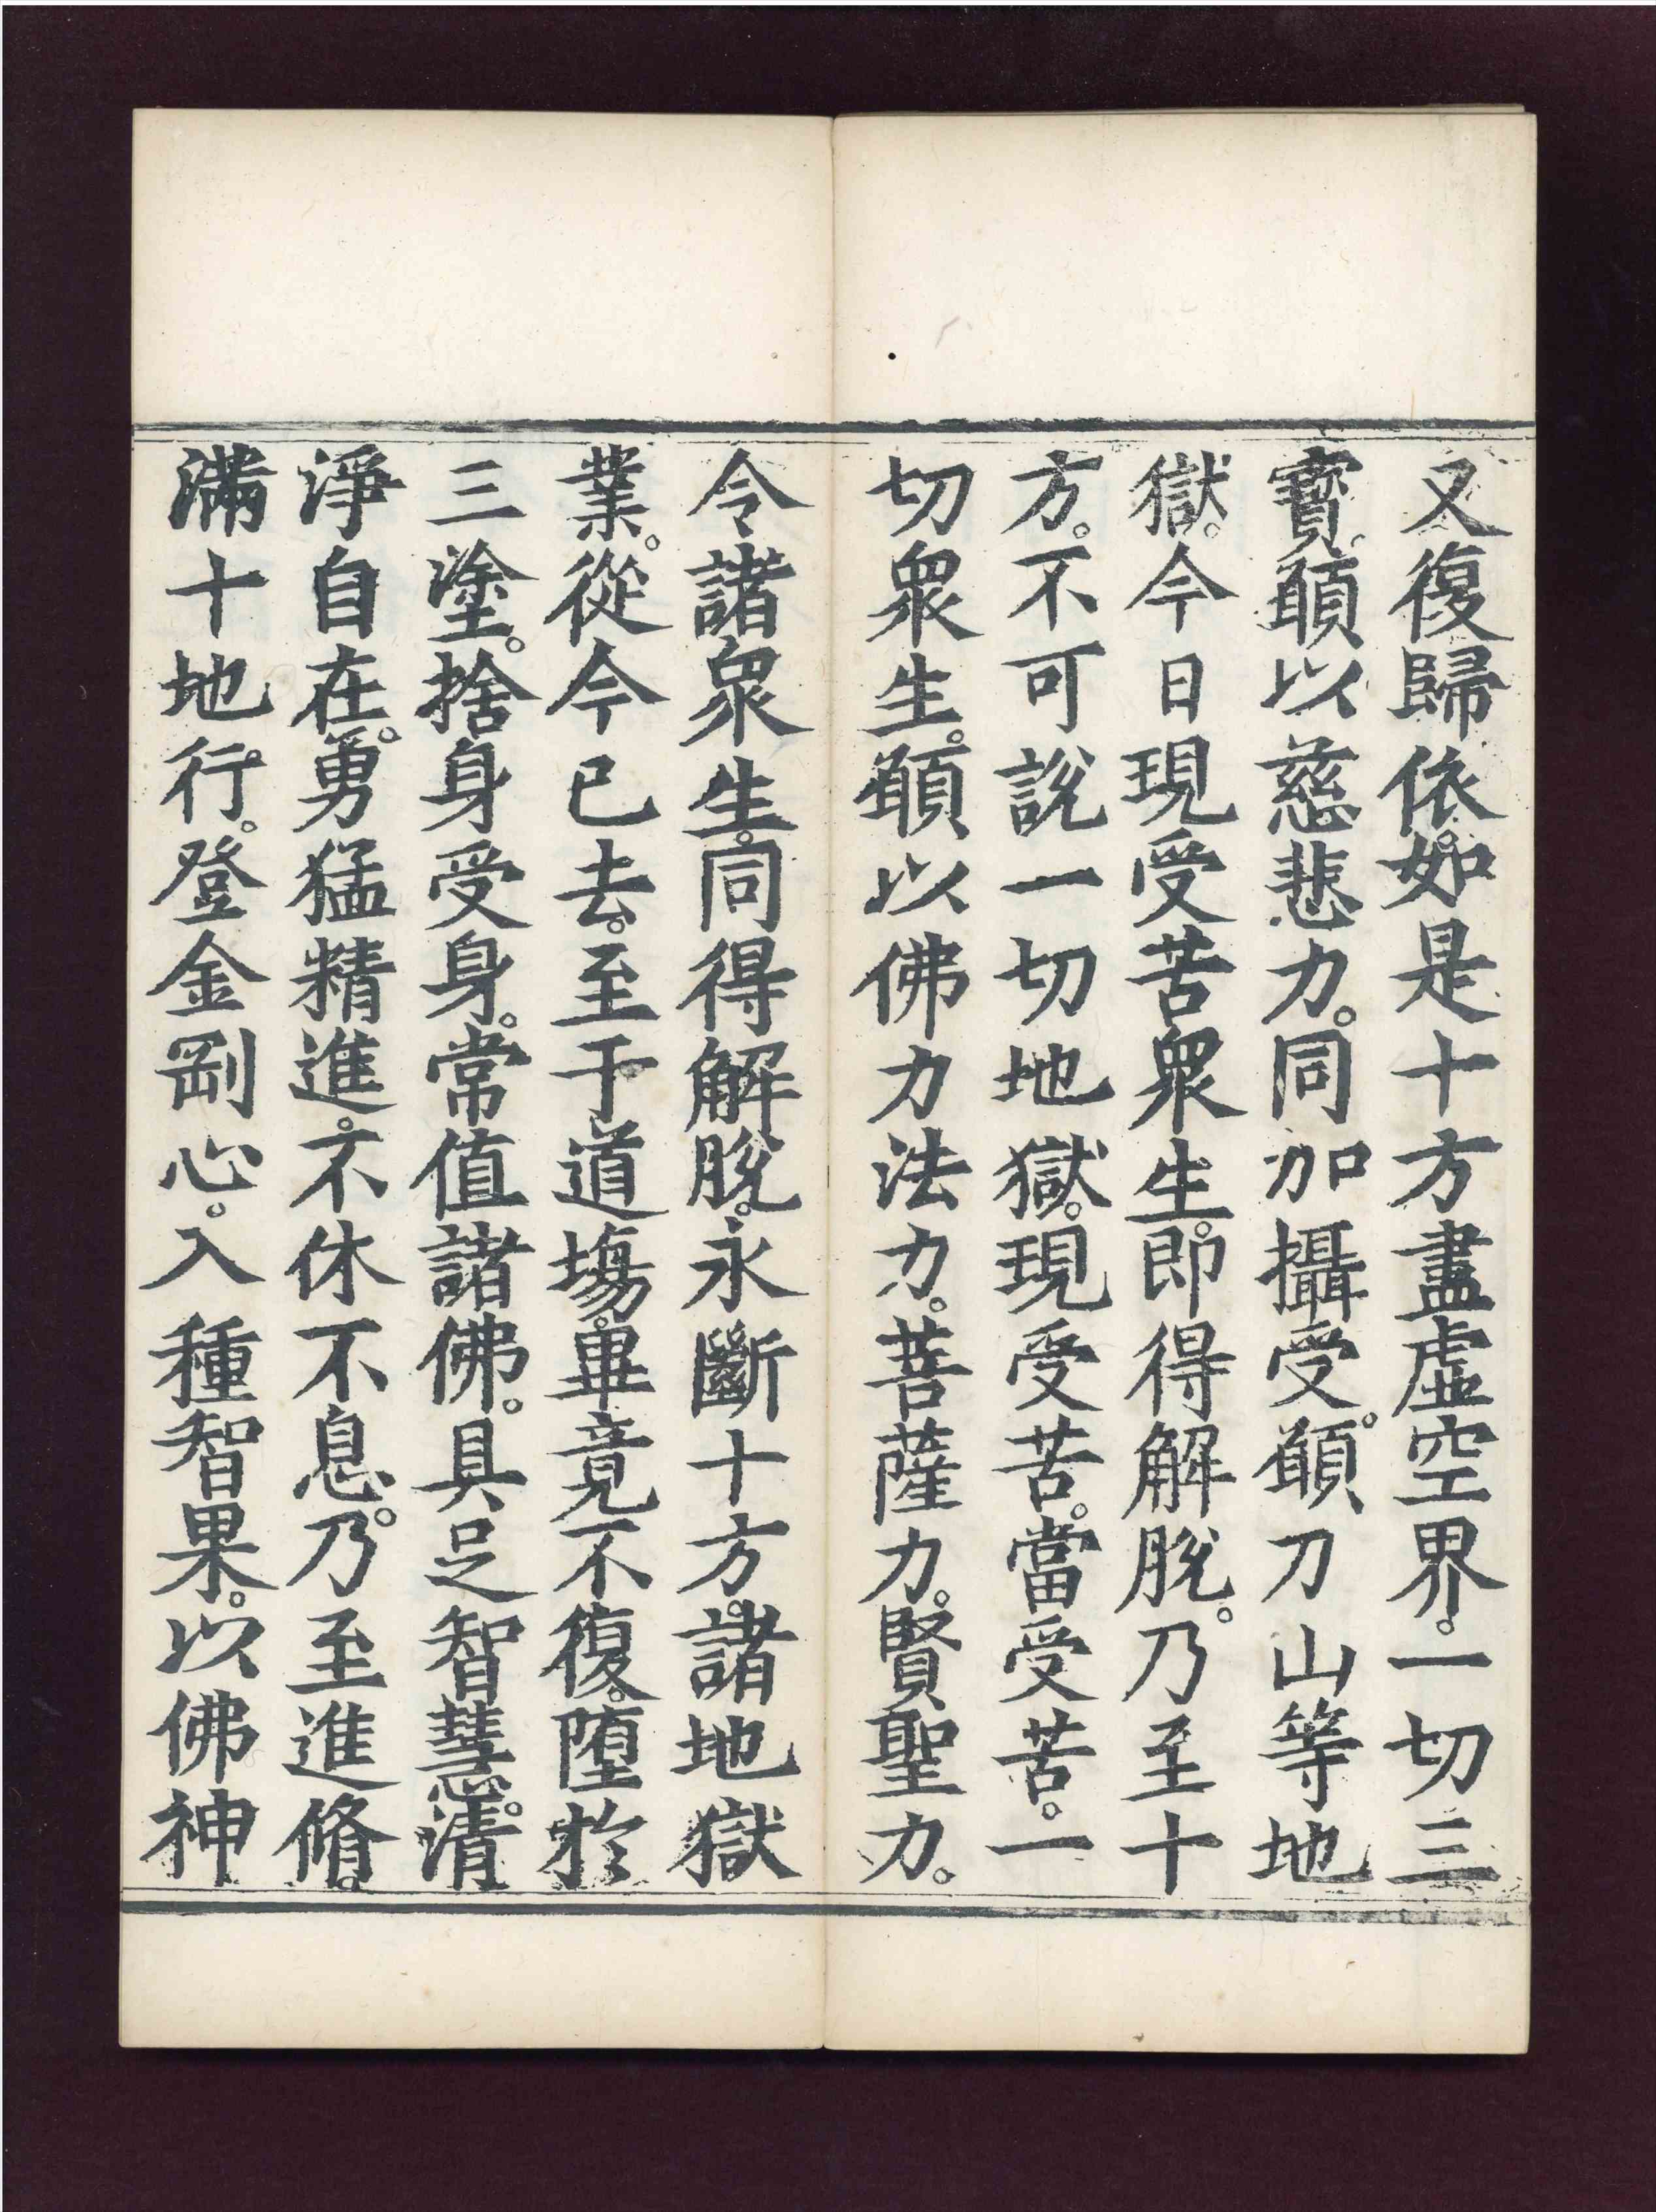 又復歸依。如是十方盡虛空界。一切三
寶。願以慈悲力。同加攝受。願刀山等地
獄。今日現受苦衆生。即得解脫。乃至十
方。不可說一切地獄。現受苦。當受苦。一
切衆生。願以佛力法力。菩薩力。賢聖力。
令諸衆生。同得解脫。永斷十方。諸地獄
業。從今已去。至于道塲。畢竟不復。墮於
三塗。捨身受身。常值諸佛。具足智慧。清
淨自在。勇猛精進。不休不息。乃至進脩。
滿十地行。登金剛心。入種智果。以佛神